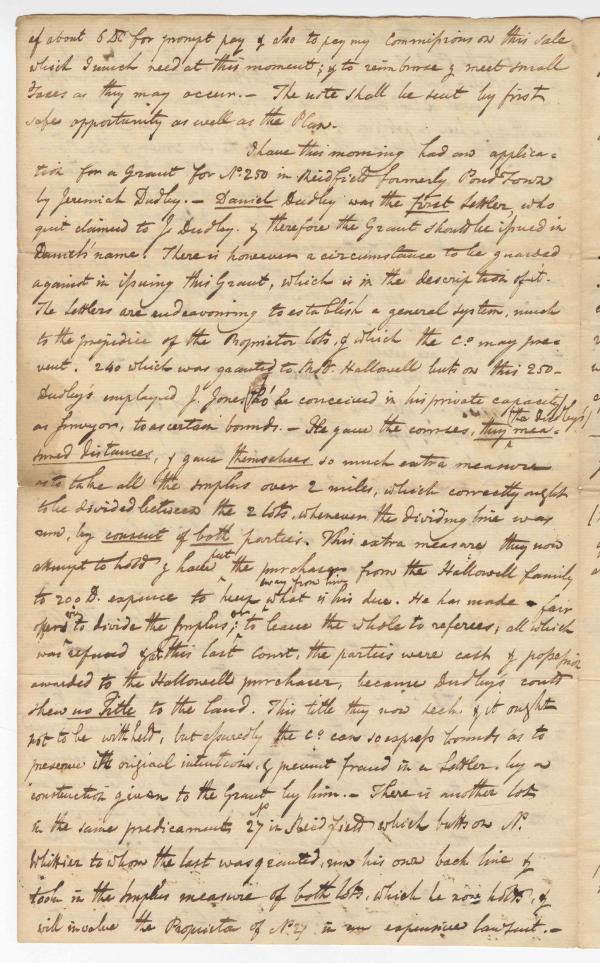 of about 6 DC for prompt pay & also to pay my Commissions on this Sale
which I much need at this moment; & to reimburse & meet small
Taxes as they may occur. – The note shall be sent by first
safe opportunity as well as the Plan.
I have this morning had an applica-
tion for a Grant for No. 250 in Readfield formerly Pond Town
by Jeremiah Dudley. – Daniel Dudley was the first Settler, who
quit claimed to J. Dudley. & therefore the Grant should be issued in
Daniels' name. There is however a circumstance to be guarded
against in issuing this Grant, which is in the description of it.
The Settlers are endeavouring to establish a general system, much
to the prejudice of the Proprietor lots, & which the Co. may pre-
vent. 240 which was granted to Hallowell buts on this 250 –
Dudley's employed J. Jones (tho' he conceived in his private capacity)
as surveyor, to ascertain bounds. – He gave the courses, they (the Dudleys) mea-
sured distances, & gave themselves so much extra measure
as to take all the surplus over 2 miles, which correctly ought
to be divided between the 2 lots, whenever the dividing line was
run, by consent of both parties. This extra measure they now
attempt to hold & have put the purchaser from the Hallowell family
to 200 D. expence to keep away from him what is his due. He has made fair
offers to divide the surplus; or to leave the whole to referees; all which
was refused & at this last Court, the parties were cast & possession
awarded to the Hallowell purchaser, because Dudley's could
shew no Title to the land. This title they now seek & it ought
not to be withheld, but assuredly the Co. can so express bounds as to
preserve its original intentions, & prevent fraud in a Settler, by a
construction given to the Grant by him. – There is another lot
in the same predicament No. 27 in Readfield which butts on N.
Whittier to whom the last was granted, run his own back line &
took in the surplus measure of both lots, which he now holds, &
will involve the Proprietor of No. 27 in an expensive lawsuit. –